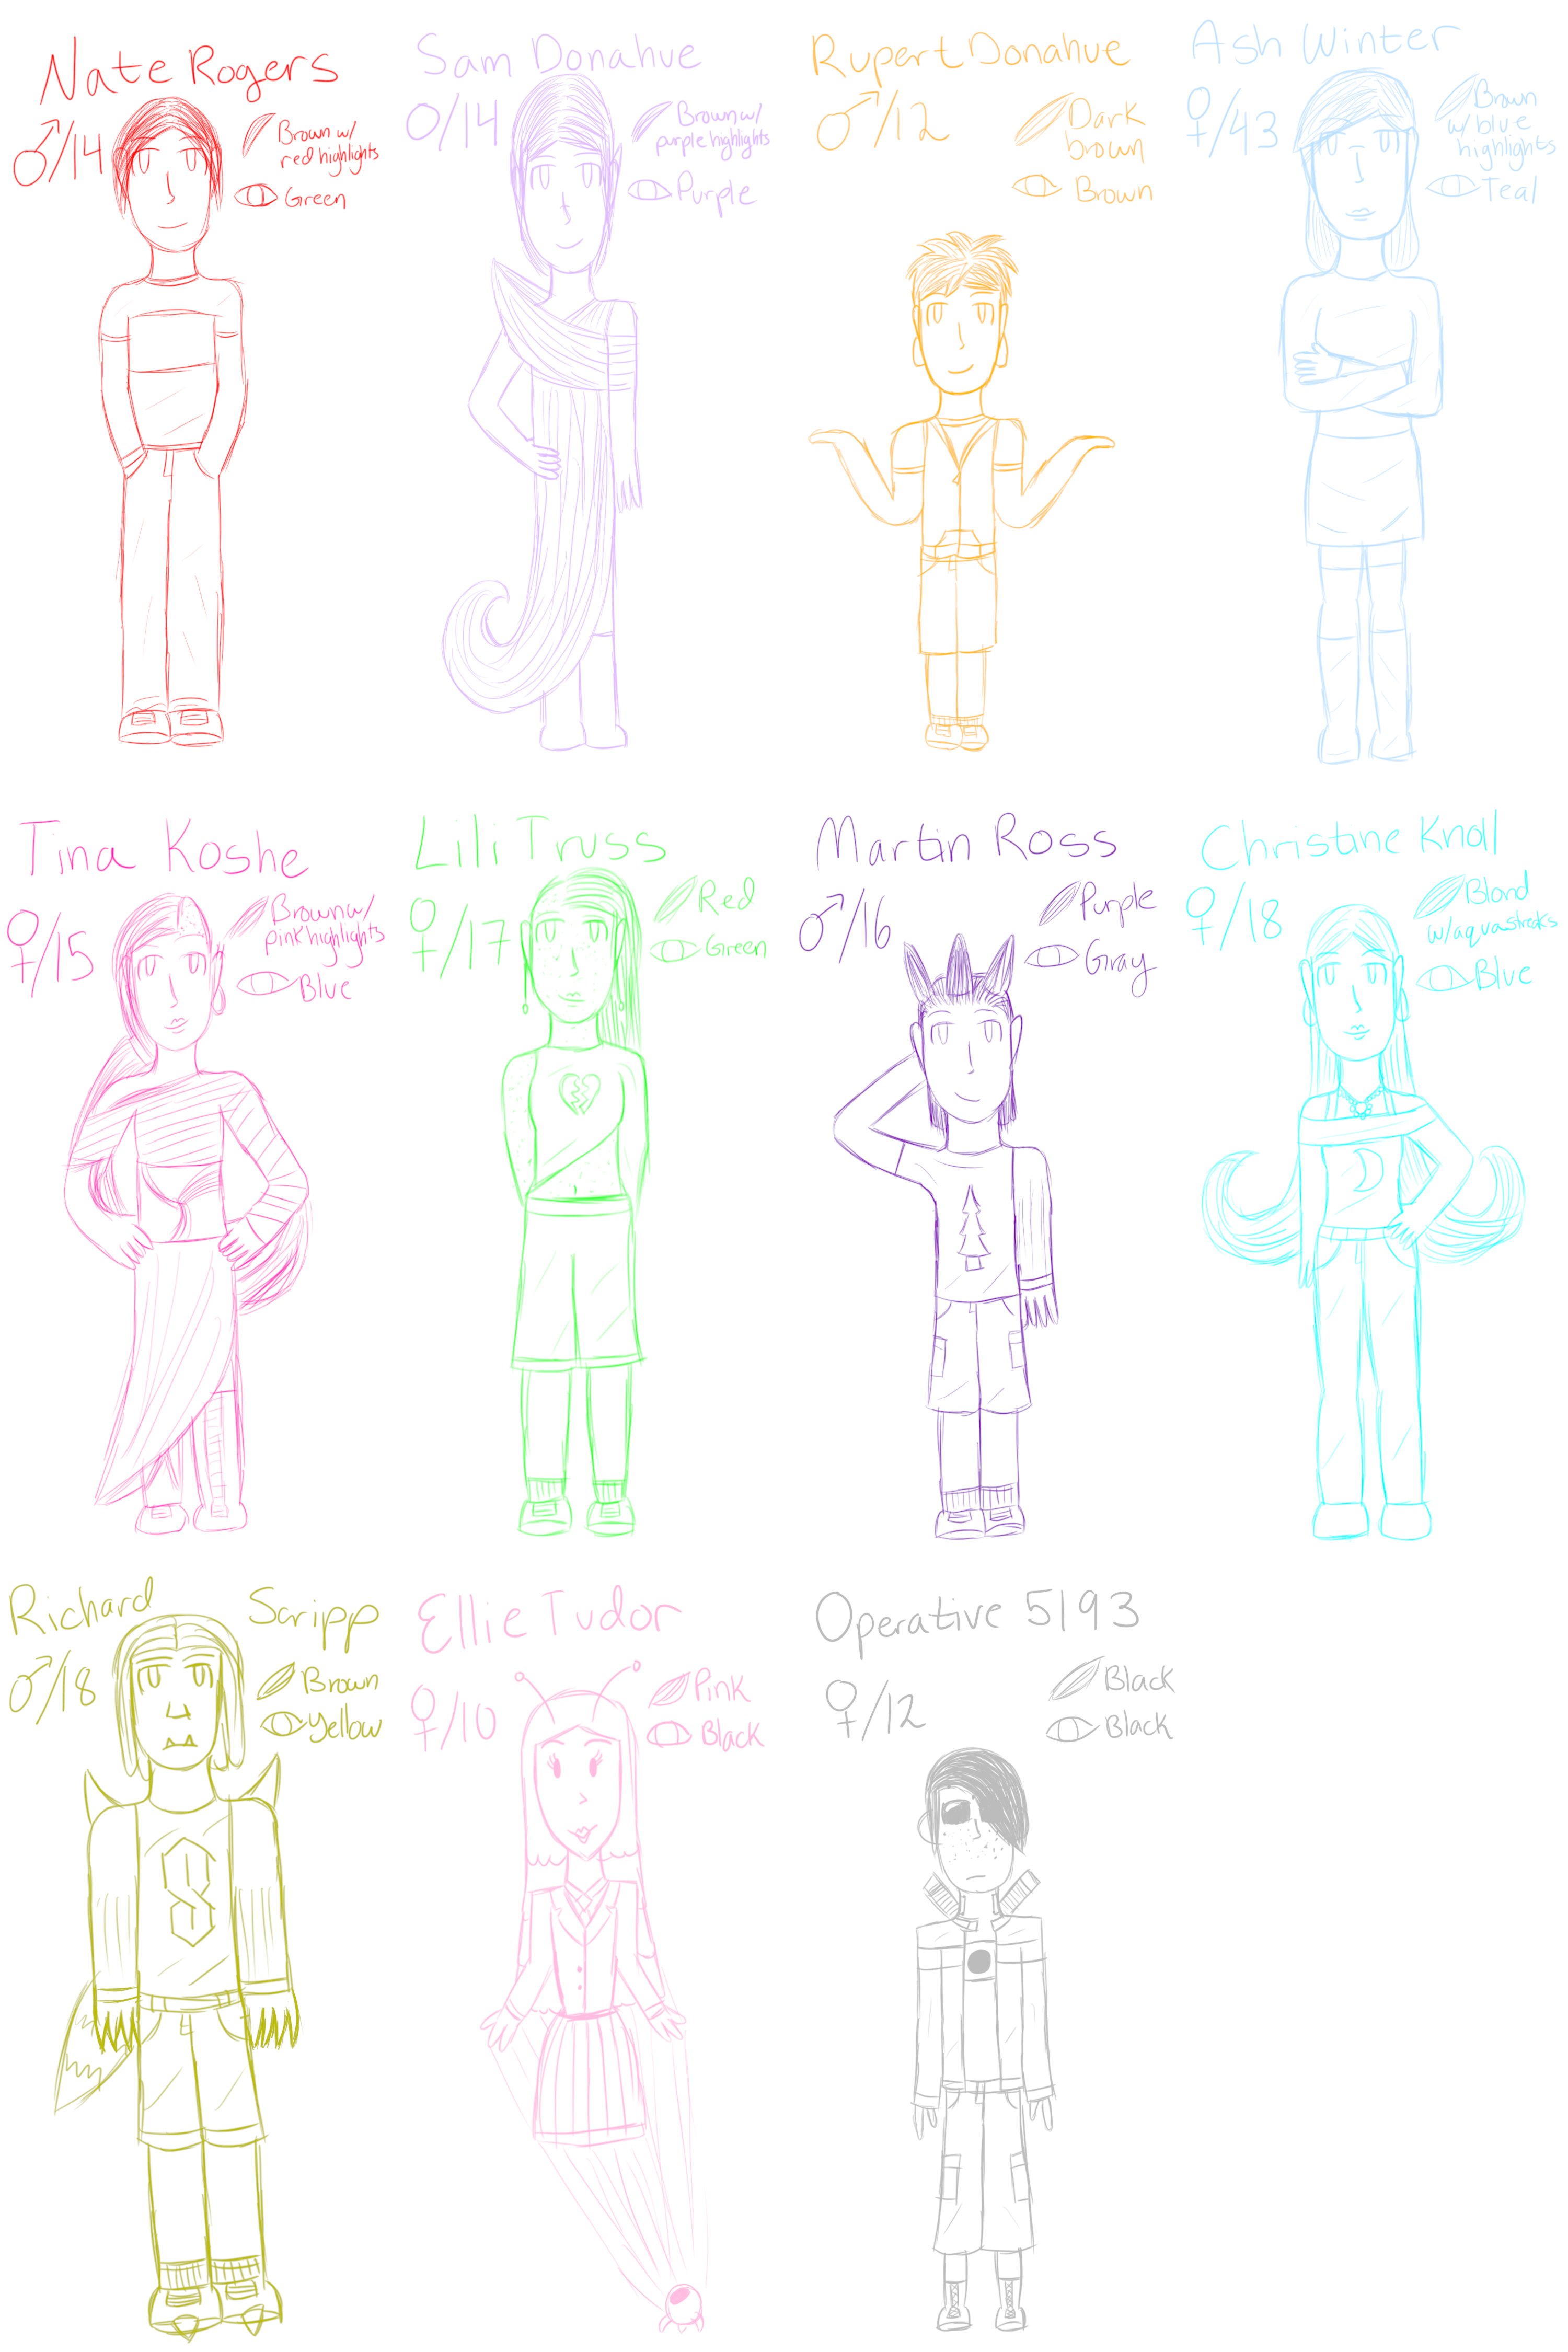 Nate Rogers
♂/14
Brown w/
red highlights
Green
Sam Donahue
O/14
Brown w/
purple highlights
Purple
Rupert Donahue
♂/12
Dark
brown
Brown
Ash Winter
♀/43
Brown
w/ blue
highlights
Teal
Tina Koshe
♀/15
Brown w/
pink highlights
Blue
Lili Truss
♀/17
Red
Green
Martin Ross
♂/16
Purple
Gray
Christine Knoll
♀/18
Blond
w/ aqua streaks
Blue
Richard Scripp
♂/18
Brown
Yellow
Ellie Tudor
♀/10
Pink
Black
Operative 5193
♀/12
Black
Black